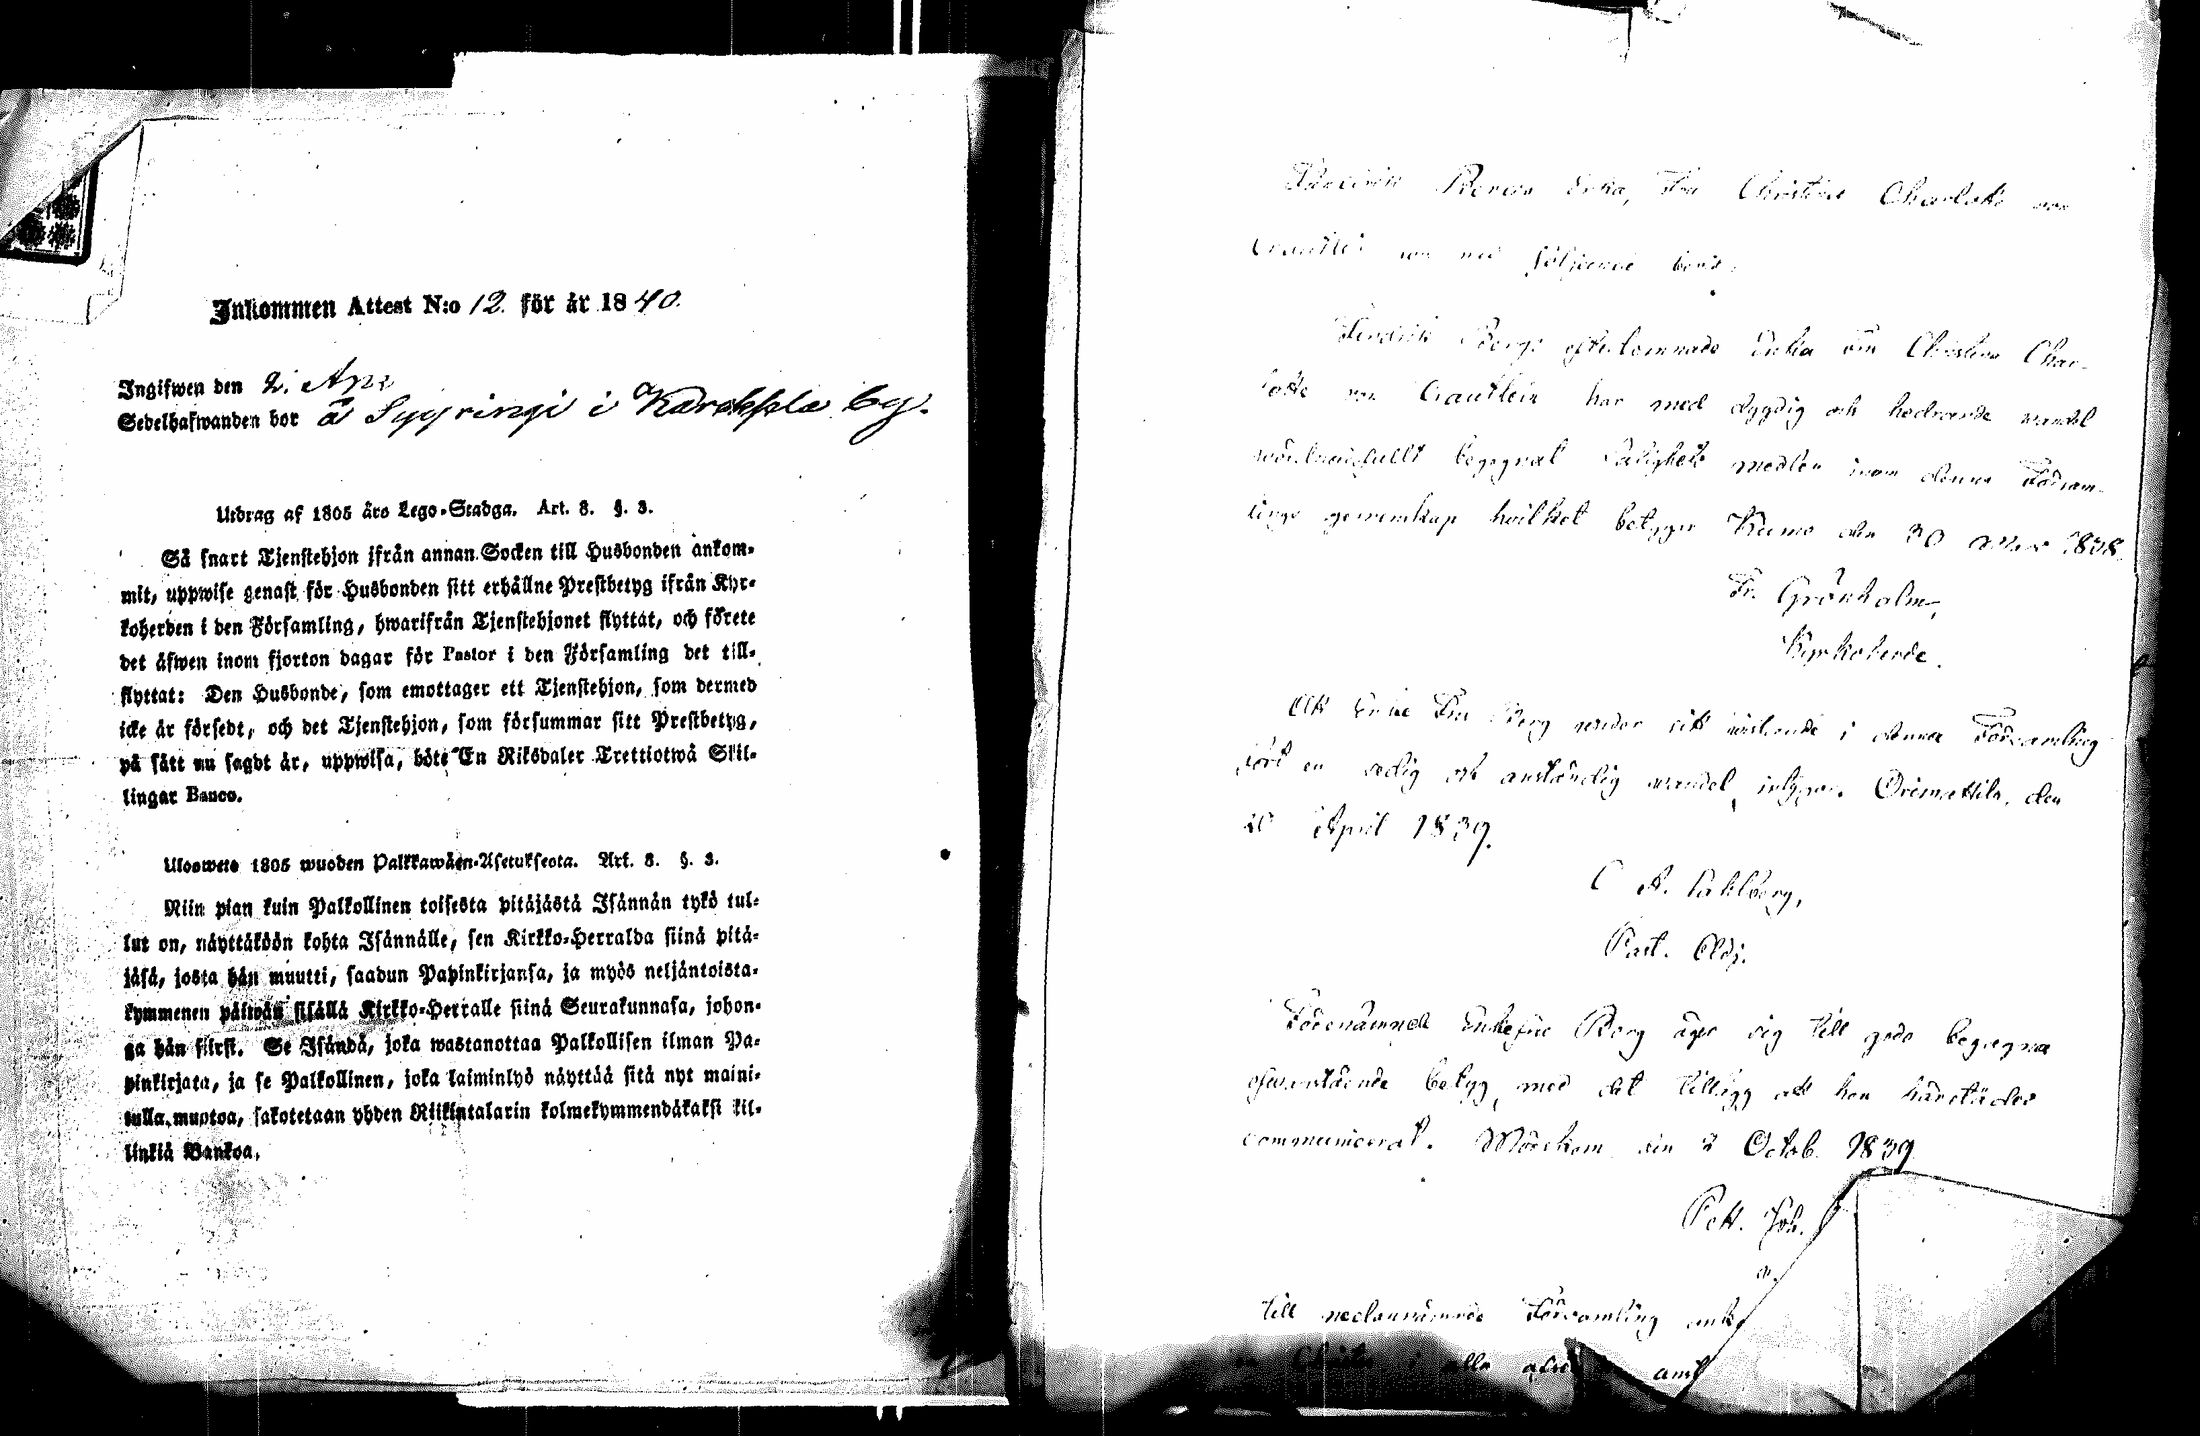 Inkommen Attest N:o 12. för år 1840.
Ingifwen den 2. Apr
Sedelhafwanden bor å Sypringi i Karkkola by.
Utdrag af 1805 års Lego-Stadga. Art. 8. §. 3.
Så snart Tjenstehjon ifrån annan Socken till Husbonden ankom-
mit, uppwise genast för Husbonden sitt erhållne Prestbetyg ifrån Kyr-
koherden i den Församling, hwarifrån Tjenstehjonet flyttat, och förete
det äfwen inom fjorton dagar för Pastor i den Församling det till-
flyttat: Den Husbonde, som emottager ett Tjenstehjon, som dermed
icke är försedt, och det Tjenstehjon, som försummar sitt Prestbetyg,
på sätt nu sagdt är, uppwisa, böte En Riksdaler Trettiotwå Skil-
lingar Banco.
Ulosweto 1805 wuoden Palkkawäen-Asetuksesta. Art. 8. §. 3.
Niin pian kuin Palkollinen toisesta pitäjästä Isännän tykö tul-
lut on, näyttäköön kohta Isännälle, sen Kirkko-Herralda siinä pitä-
jäsä, josta hän muutti, saadun Papinkirjansa, ja myös neljäntoista-
kymmenen päiwän sisällä Kirkko-Herralle siinä Seurakunnasa, johon-
ga hän siirsi. Se Isändä, joka wastanottaa Palkollisen ilman Pa-
pinkirjata, ja se Palkollinen, joka laiminlyö näyttää sitä nyt maini-
tulla muotoa, sakotetaan yhden Riikintalarin kolmekymmendäkaksi kil-
linkiä Bankoa.
Enka, Fru Christina Charlotta von
följande
Fredrik Bergs efterlemnade Enka Fru Christina Char-
lotta von Crautlein har med dygdig och hedrande wandel
wördnadsfullt begagnat Salighets medlen inom denna Försam-
lings gemenskap hvilket betygar Kumo den 30 1838.
Fr. Grönholm,
Kyrkoherde.
Att Enke Fru Berg under sitt wistande i denna Församling
fört en sedig och anständig wandel, intygar. Orimattila, den
20 April 1839.
C. A. Pahlberg,
Past. Adj.
Förenämnde Enkefru Berg äger sig till godo begagna
ofwanstående betyg, med det tillägg att hon härstädes
communicerat. Mörskom den 2 Octob. 1839
Pett. Joh.
Till nedannämnde Församling
i alla